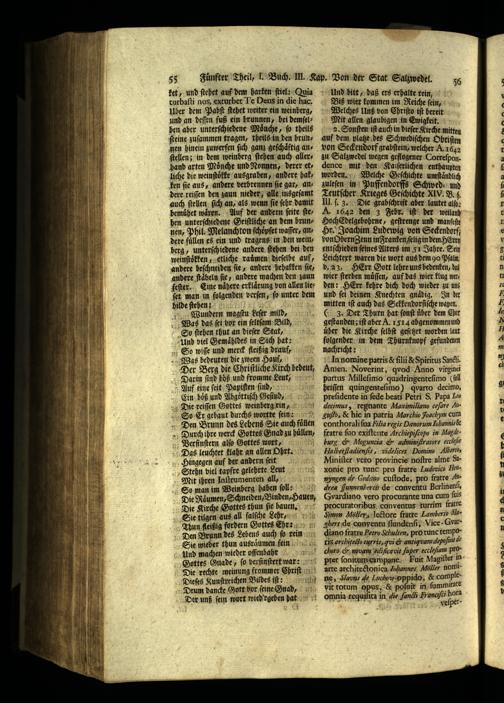 55 Fünfter Theil, I. Buch. III. Kap. Von der Stat Salzwedel. 56
ket, und stehet auf dem harken stiel: Quia
turbasti nos, excurber Te Deus in die hac.
Uber dem Pabst stehet weiter ein weinberg,
und an dessen fuß ein brunnen, bei demsel-
ben aber unterschiedene Mönche, so theils
steine zusammen tragen, theils in den brun-
nen hinein zuwerfen sich ganz geschäftig an-
stellen; in dem weinberg stehen auch aller-
hand arten Mönche und Nonnen, derer et-
liche die weinstöcke ausgraben, andere hak-
ken sie aus, andere verbrennen sie gar, an-
dere reissen den zaun nieder, alle insgesamt
auch stellen sich an, als wenn sie sehr damit
bemühet wären. Auf der andern seite ste-
hen unterschiedene Geistliche an dem brun-
nen, Phil. Melanchton schöpfet wasser, an-
dere füllen es ein und tragens in den wein-
berg, unterschiedene andere stehen bei den
weinstökken, etliche räumen dieselbe auf,
andere beschneiden sie, andere behakken sie,
andere stäbeln sie, andere machen den zaun
fester. Eine nähere erklärung von allen lie-
set man in folgenden versen, so unter dem
bilde stehen:
Wundern magstu Leser mild,
Was das sei vor ein seltsam Bild,
So stehen thut an dieser Stat,
Und viel Gemähldes in sich hat:
So wisse und merck fleißig drauf,
Was bedeuten die zween Hauf,
Der Berg die Christliche Kirch bedeut,
Darin sind böß und fromme Leut,
Auf eine seit Papisten sind,
Ein böß und Abgöttisch Gesind,
Die reissen Gottes weinberg ein,
So Er gebaut durchs wortte sein:
Den Brunn des Lebens Sie auch füllen
Durch ihre werck Gottes Gnad zu hüllen,
Verfinstern also Gottes wort,
Das leuchtet klahr an allen Ohrt.
Hingegen auf der andern seit
Stehn viel tapfre gelehrte Leut
Mit ihren Instrumenten all,
So man im Weinberg haben soll:
Die Räumen, Schneiden, Binden, Hauen,
Die Kirche Gottes thun sie bauen,
Sie tilgen aus all falsche Lehr,
Thun fleißig fordern Gottes Ehr:
Den Brunn des Lebens auch so rein
Sie wieder thun ausräumen fein
Und machen wieder offenbahr
Gottes Gnade, so verfinstert war:
Die rechte meinung frommer Christ
Dieses Kunstreichen Bildes ist:
Drum dancke Gott vor seine Gnad,
Der unß sein wort wiedergeben hat
Und bitt, daß ers erhalte rein,
Bis wier kommen im Reiche sein,
Welches Uns von Christo ist bereit
Mit allen glaubigen in Ewigkeit.
2. Sonsten ist auch in dieser Kirche mitten
auf dem platze des Schwedischen Obristen
von Seckendorf grabstein, welcher A. 1642
zu Salzwedel wegen gepflogener Correspon-
dence mit den Kaiserlichen enthauptet
worden. Welche Geschichte umständlich
zulesen in Puffendorffs Schwed- und
Teutscher Krieges Geschichte XIV. B. §
III. s. 3. Die grabschrift aber lautet also:
A. 1642 den 3 Febr. ist der weiland
HochEdelgebohrne, gestrenge und mannfste
Hr. Joachim Ludewig von Seckendorf,
von Obern Zenn in Francken selig in dem HErrn
entschlafen seines Alters im 51 Jahre. Ein
Leichtext waren die wort aus dem 90 Psalm
v. 23. HErr Gott lehre uns bedenken, daß
wier sterben müssen, auf das wier klug wer-
den: HErr kehre dich doch wieder zu uns
und sei deinen Knechten gnädig. In der
mitten ist auch das Seckendorfische wapen.
( 3. Der Thurn hat sonst über dem Chor
gestanden; ist aber A. 1514 abgenommen und
über die Kirche selbst gesetzet worden laut
folgender in dem Thurnknopf gefundenen
nachricht:
In nomine patris & filii & Spiritus Sancti.
Amen. Noverint, qvod Anno virginei
partus Millesimo quadringentesimo (sol
heissen quingentesimo) quarto decimo,
presidente in sede beati Petri S. Papa Leo
decimus, regnante Maximiliano cesare Au-
gusto, & hic in patria Marchio Joachym cum
conthorali sua Filia regis Danorum Iohannis &
fratre suo existente Archiepiscopo in Magde-
burg & Moguncia & administratore ecclesie
Halberstadiensis, videlicet Domino Alberto,
Minister vero provincie nostre alme Sa-
xonie pro tunc pro fratre Ludovico Hen-
nyngen de custode, pro fratre An-
drea de conventu Berlinensi,
Gvardiano vero procurante una cum suis
procuratoribus conventus turrim fratre
Simon Möller, lectore fratre Lamberto
de conventu Sundensi, Vice-Gvar-
diano fratre Petro Schulten, pro tunc tempo-
ris architecto turris, qui & antiquam deposuit de
choro & novam edificavit super ecclesiam pro-
pter sonitum campane. Fuit Magister in
arte architectonica Iohannes Möller nomi-
ne, Slavus de Luchow oppido, & comple-
vit totum opus, & posuit in summitate
omnia requisita in die sancti Francisci hora
vesper-